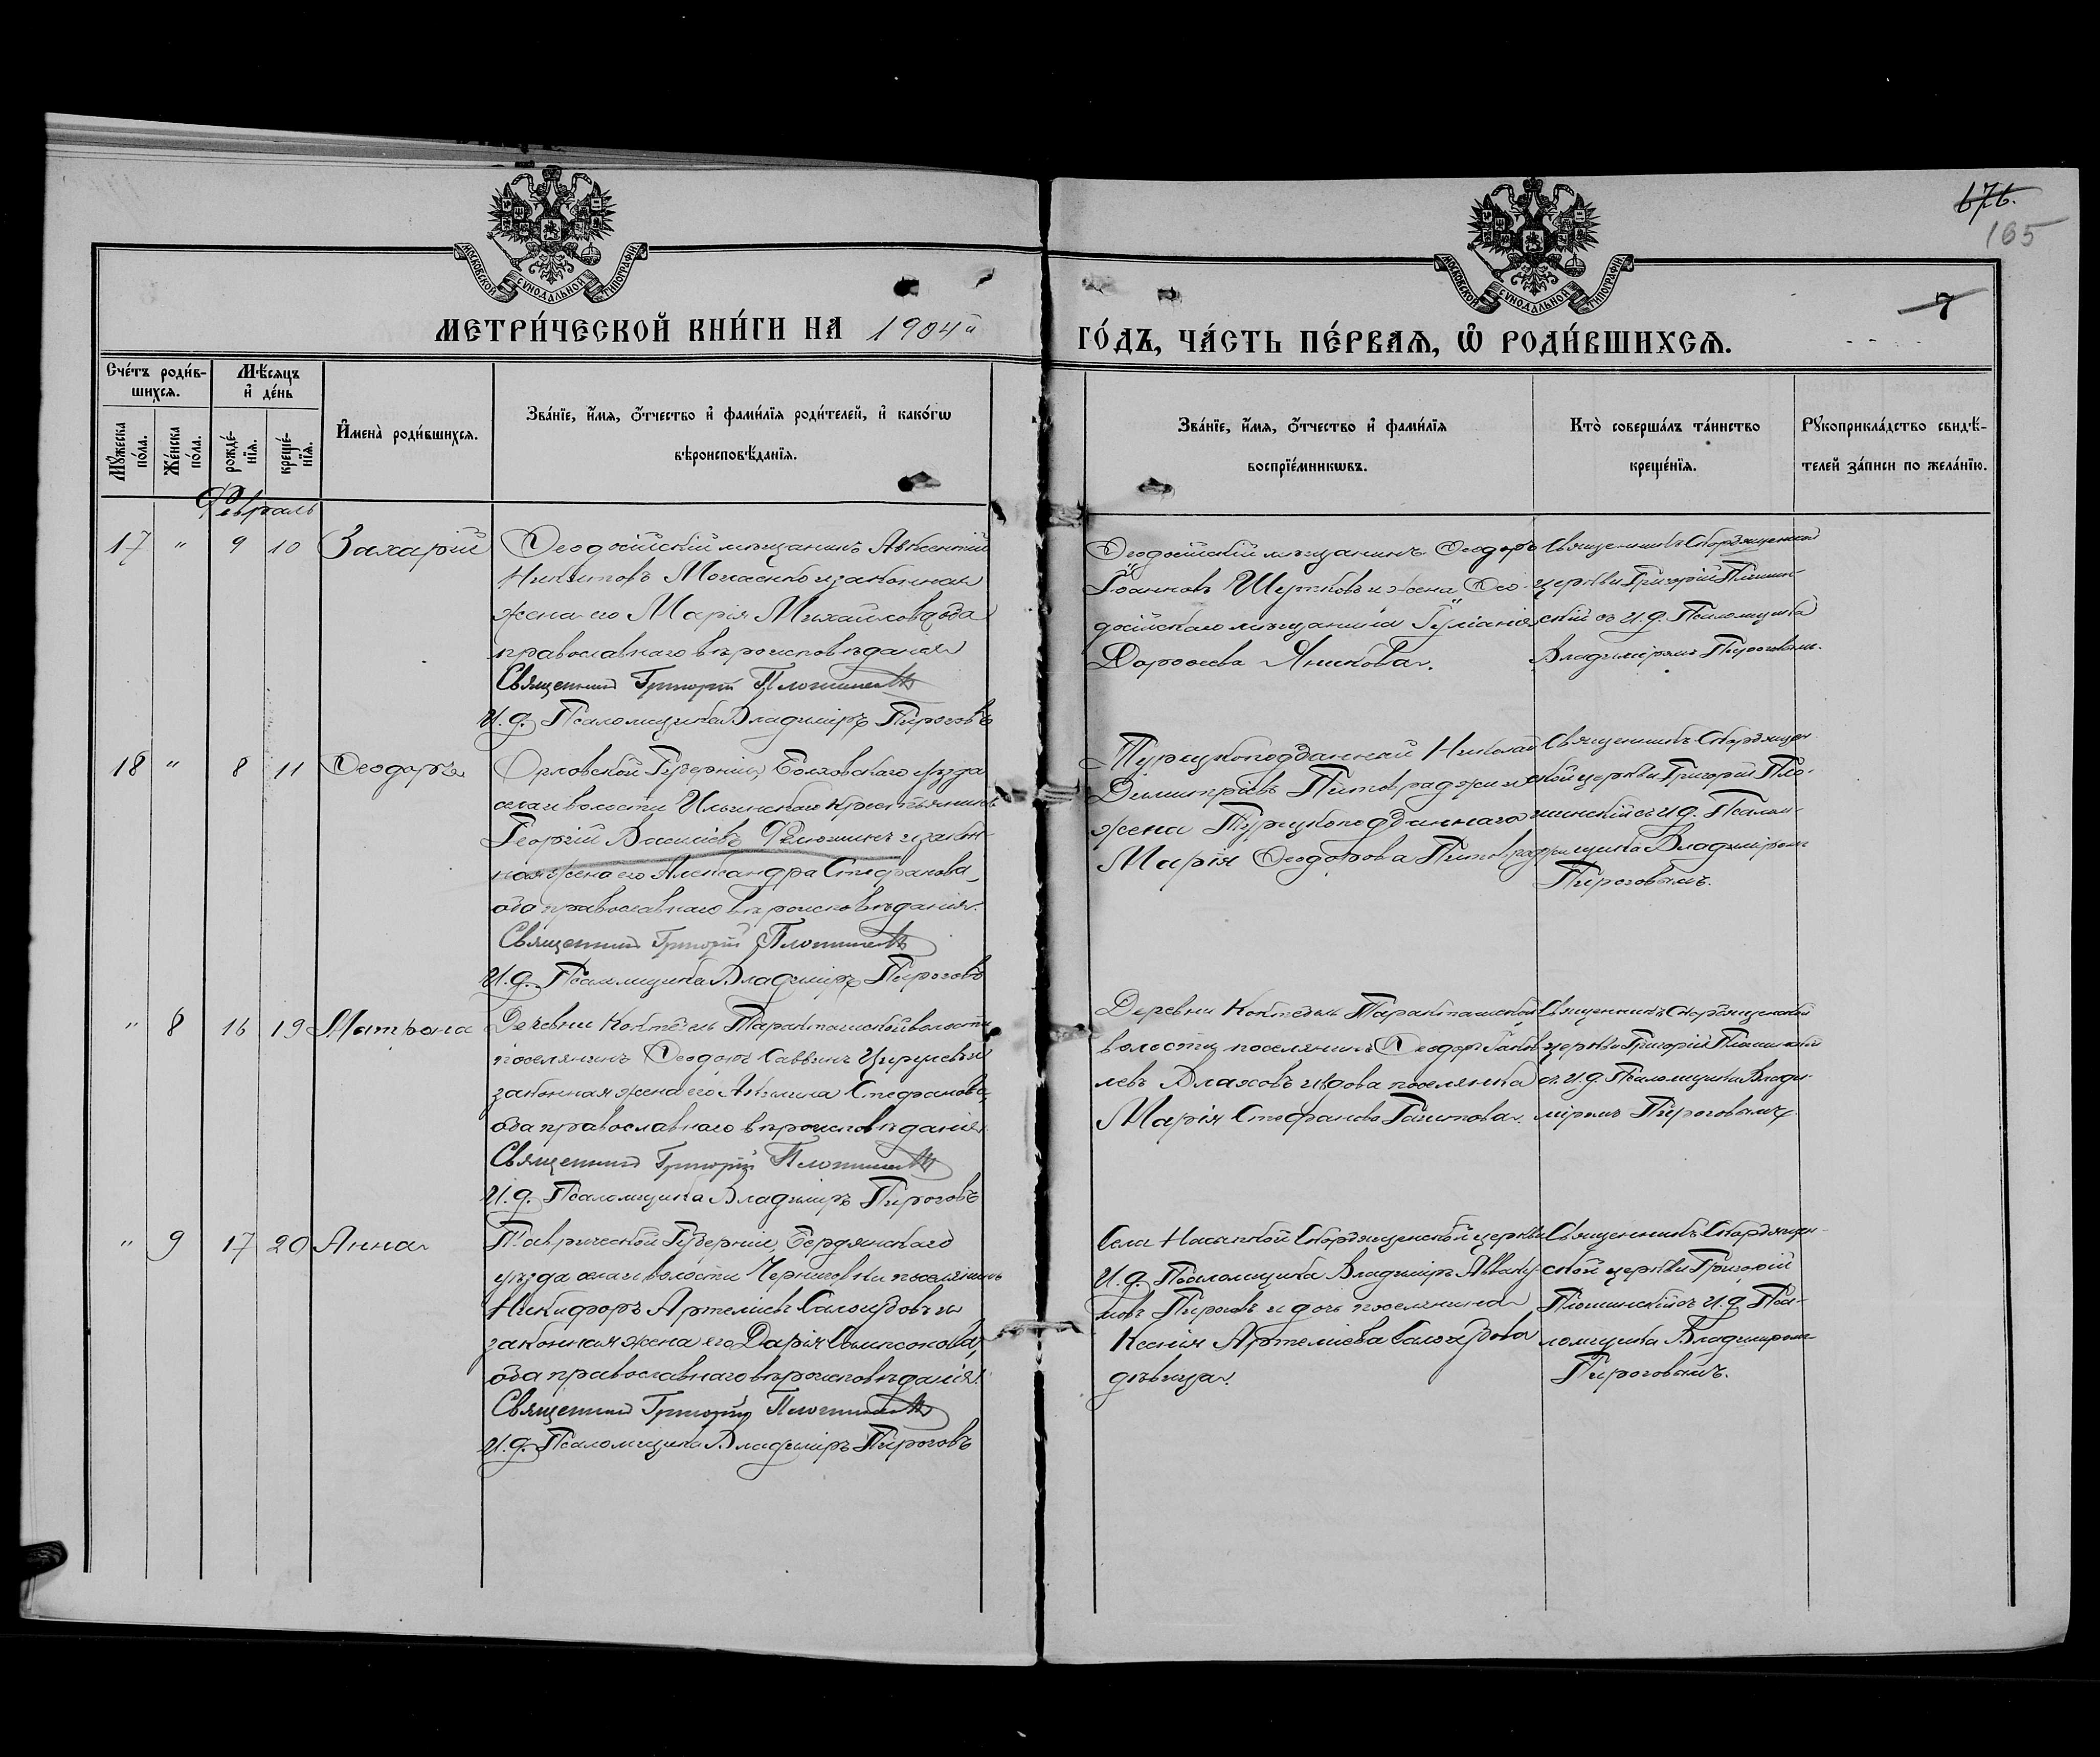 676.
165
7
МОСКОВСКОЙ СѴНОДАЛЬНОЙ ТИПОГРАФІИ
МОСКОВСКОЙ СѴНОДАЛЬНОЙ ТИПОГРАФІИ
МЕТРИ́ЧЕСКОЙ КНИ́ГИ НА 1904й
ГО́ДЪ, ЧА́СТЬ ПЕ́РВАѦ, Ѡ҆ РОДИ́ВШИХСѦ.
Сче́тъ роди́в-
шихсѧ.
Мѣ́сѧцъ
и҆ де́нь
Мꙋ́жеска
по́ла.
Же́нска
по́ла.
рожде́-
нїѧ.
креще́-
нїѧ.
И҆мена̀ роди́вшихсѧ.
Зва́нїе, и҆́мѧ, ѻ҆́тчество и҆ фами́лїѧ роди́телей, и҆ како́гѡ
вѣроисповѣ́данїѧ.
Зва́нїе, и҆́мѧ, ѻ҆́тчество и҆ фами́лїѧ
воспрїе́мникѡвъ.
Кто̀ соверша́лъ та́инство
креще́нїѧ.
Рꙋкоприкла́дство свидѣ́-
телей за́писи по жела́нїю.
Февраль
17 " 9 10 Захарій
Ѳеодосійскій мѣщанинъ Авксентій
Никитовъ Моисеенко и законная
жена его Марія Михайлова, оба
православнаго вѣроисповѣданія
Священникъ Григорій
И. д. Псаломщика Владиміръ Пироговъ
Ѳеодосійскій мѣщанинъ Ѳеодоръ
Іоанновъ Шутковъ и жена Ѳео-
досійскаго мѣщанина Іуліанія
Дороѳеева Яникова.
Священникъ Скорбященской
церкви Григорій
скій съ И. д. Псаломщика
Владиміромъ Пироговымъ.
18 " 8 11 Ѳеодоръ
Орловской Губерніи, Болховскаго уѣзда
села и волости Ильинской крестьянинъ
Георгій Васильевъ и закон-
ная жена его Александра Стефанова,
оба православнаго вѣроисповѣданія.
Священникъ Григорій
И. д. Псаломщика Владиміръ Пироговъ
Турецкоподданный Николай
Димитріевъ и
жена Турецкоподданнаго
Марія Ѳеодорова
Священникъ Скорбящен-
ской церкви Григорій Пло-
шинскій съ И. д. Псалом-
щика Владиміромъ
Пироговымъ.
" 8 16 19 Матрона
Деревни Коктебель Таракташской волости
поселянинъ Ѳеодоръ Саввинъ и
законная жена его Акилина Стефанова,
оба православнаго вѣроисповѣданія.
Священникъ Григорій
И. д. Псаломщика Владиміръ Пироговъ
Деревни Коктебель Таракташской
волости, поселянинъ Ѳеодоръ Іаков-
левъ Влаховъ и вдова поселянка
Марія Стефанова
Священникъ Скорбященской
церкви Григорій
съ И. д. Псаломщика Влади-
міромъ Пироговымъ.
" 9 17 20 Анна
Таврической Губерніи, Бердянскаго
уѣзда села и волости Черниговки поселянинъ
Никифоръ Артеміевъ и
законная жена его Дарія Сампсонова,
оба православнаго вѣроисповѣданія.
Священникъ Григорій
И. д. Псаломщика Владиміръ Пироговъ
Села Насыпкой Скорбященской церкви
И. д. Псаломщика Владиміръ Аввaку-
мовъ Пироговъ и дочь поселянина
Ксенія Артеміева
дѣвица.
Священникъ Скорбящен-
ской церкви Григорій
съ И. д. Пса-
ломщика Владиміромъ
Пироговымъ.